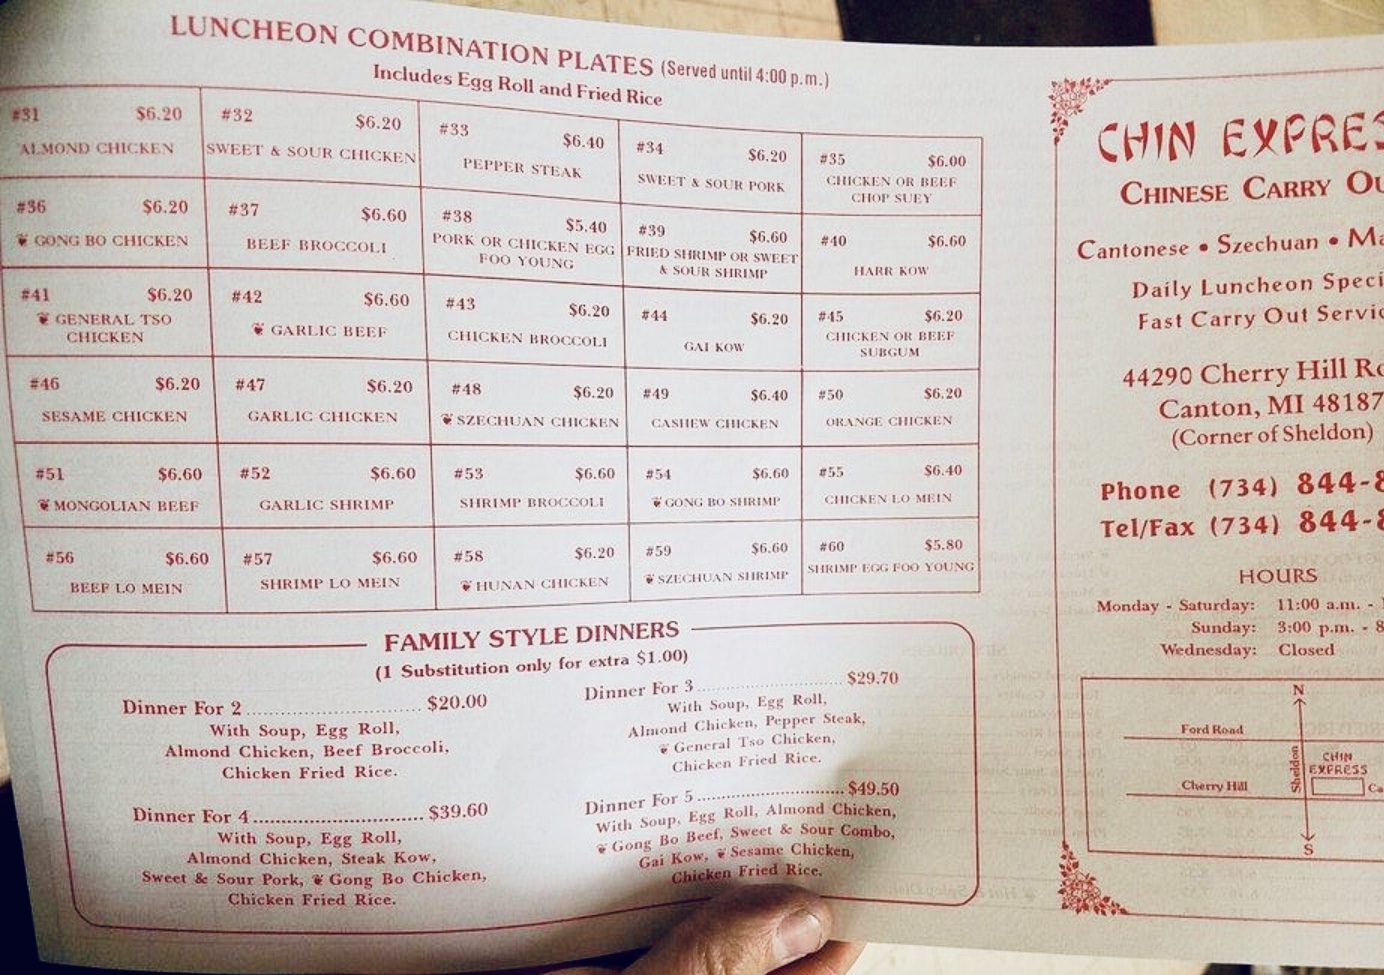 LUNCHEON COMBINATION PLATES (Served until 4:00 p.m.)
Includes Egg Roll and Fried Rice
#31 $6.20
ALMOND CHICKEN
#32 $6.20
SWEET & SOUR CHICKEN
#33 $6.40
PEPPER STEAK
#34 $6.20
SWEET & SOUR PORK
#35 $6.00
CHICKEN OR BEEF
CHOP SUEY
#36 $6.20
GONG BO CHICKEN
#37 $6.60
BEEF BROCCOLI
#38 $5.40
PORK OR CHICKEN EGG
FOO YOUNG
#39 $6.60
FRIED SHRIMP OR SWEET
& SOUR SHRIMP
#40 $6.60
HARR KOW
#41 $6.20
GENERAL TSO
CHICKEN
#42 $6.60
GARLIC BEEF
#43 $6.20
CHICKEN BROCCOLI
#44 $6.20
GAI KOW
#45 $6.20
CHICKEN OR BEEF
SUBGUM
#46 $6.20
SESAME CHICKEN
#47 $6.20
GARLIC CHICKEN
#48 $6.20
SZECHUAN CHICKEN
#49 $6.40
CASHEW CHICKEN
#50 $6.20
ORANGE CHICKEN
#51 $6.60
MONGOLIAN BEEF
#52 $6.60
GARLIC SHRIMP
#53 $6.60
SHRIMP BROCCOLI
#54 $6.60
GONG BO SHRIMP
#55 $6.40
CHICKEN LO MEIN
#56 $6.60
BEEF LO MEIN
#57 $6.60
SHRIMP LO MEIN
#58 $6.20
HUNAN CHICKEN
#59 $6.60
SZECHUAN SHRIMP
#60 $5.80
SHRIMP EGG FOO YOUNG
FAMILY STYLE DINNERS
(1 Substitution only for extra $1.00)
Dinner For 2 .............................. $20.00
With Soup, Egg Roll,
Almond Chicken, Beef Broccoli,
Chicken Fried Rice.
Dinner For 3 .............................. $29.70
With Soup, Egg Roll,
Almond Chicken, Pepper Steak,
General Tso Chicken,
Chicken Fried Rice.
Dinner For 4 .............................. $39.60
With Soup, Egg Roll,
Almond Chicken, Steak Kow,
Sweet & Sour Pork, Gong Bo Chicken,
Chicken Fried Rice.
Dinner For 5 .............................. $49.50
With Soup, Egg Roll, Almond Chicken,
Gong Bo Beef, Sweet & Sour Combo,
Gai Kow, Sesame Chicken,
Chicken Fried Rice.
CHIN EXPRES
CHINESE CARRY OU
Cantonese • Szechuan • Ma
Daily Luncheon Speci
Fast Carry Out Servic
44290 Cherry Hill Ro
Canton, MI 48187
(Corner of Sheldon)
Phone (734) 844-8
Tel/Fax (734) 844-8
HOURS
Monday - Saturday: 11:00 a.m. -
Sunday: 3:00 p.m. - 8
Wednesday: Closed
N
Ford Road
Sheldon
CHIN
EXPRESS
Cherry Hill
Ca
S